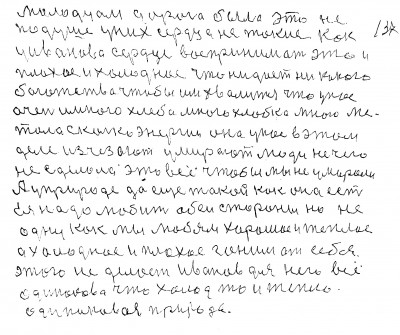 молодцам дорога была это не
по душе у них сердца не такие как
у иванова сердце воспринимат это и
плохое и холодное что нидает ни какого
богатства чтобы им хвалится что у нас
очен и много хлеба много хлобка много ме-
тола сколько энергии она у нас в этом
деле изчезают умирают люди нечего
не сделала это всё чтобы мы не умирали
А у природе да еще такой как она ест
ея надо любит обеи стораны но не
одну как мы любям харошае и теплое
а холодное и плохое гоним от себя.
этого не делает Иванов для него всё
одинакова что холод то и тепло.
одинаковая природа.
137